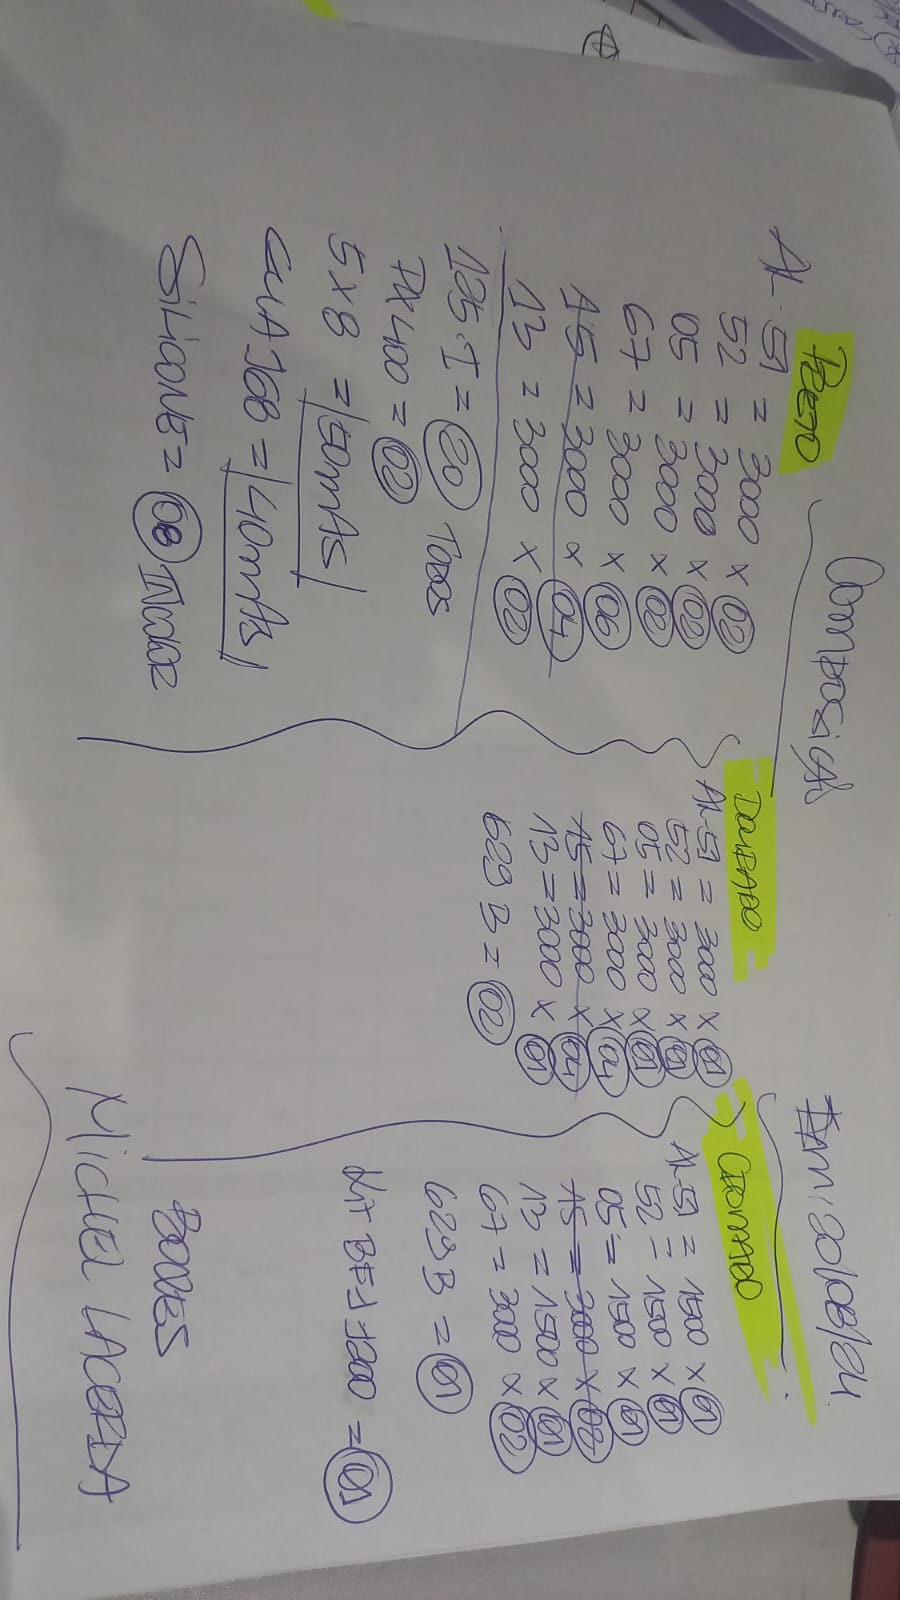 Em: 20/08/24
PRETO
AL-51 = 3000 x 02
52 = 3000 x 02
05 = 3000 x 02
67 = 3000 x 06
15 = 3000 x 04
13 = 3000 x 02
125-I = 20 TODOS
PX400 = 02
5x8 = 50mAs
CUA368 = 40mAs
SILICONE = 08
DOURADO
AL-51 = 3000 x 01
52 = 3000 x 01
05 = 3000 x 01
67 = 3000 x 04
15 = 3000 x 04
13 = 3000 x 01
623B = 02
CROMADO
AL-51 = 1500 x 01
52 = 1500 x 01
05 = 1500 x 01
15 = 3000 x 02
13 = 1500 x 01
67 = 3000 x 02
623B = 01
MICHEL LACERDA